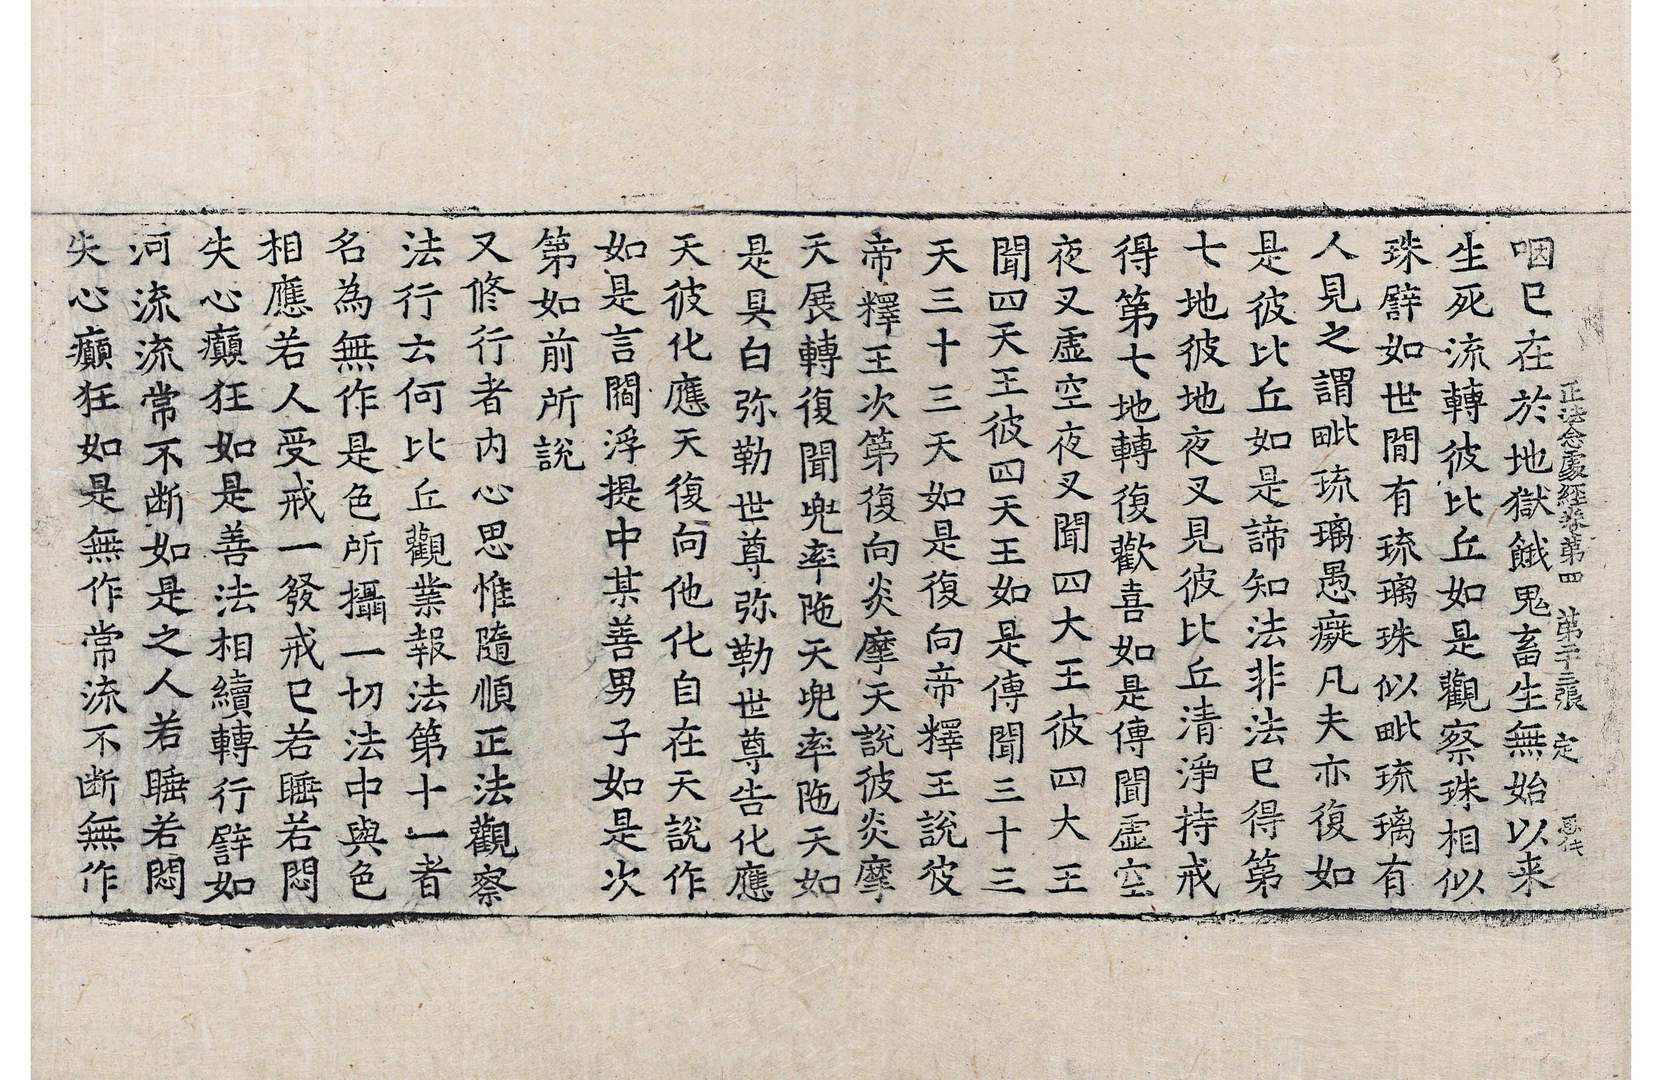 咽已在於地獄餓鬼畜生無始以来
正法念處經卷第四 第二十三張 定
生死流轉彼比丘如是觀察珠相似
珠譬如世間有琉璃珠似毗琉璃有
人見之謂毗琉璃愚癡凡夫亦復如
是彼比丘如是諦知法非法已得第
七地彼地夜叉見彼比丘清淨持戒
得第七地轉復歡喜如是傳聞虛空
夜叉虛空夜叉聞四大王彼四大王
聞四天王彼四天王如是傳聞三十三
天三十三天如是復向帝釋王說彼
帝釋王次第復向炎摩天說彼炎摩
天展轉復聞兜率陁天兜率陁天如
是具白弥勒世尊弥勒世尊告化應
天彼化應天復向他化自在天說作
如是言閻浮提中某善男子如是次
第如前所說
又修行者內心思惟隨順正法觀察
法行云何比丘觀業報法第十一者
名為無作是色所攝一切法中與色
相應若人受戒一發戒已若睡若悶
失心癲狂如是善法相續轉行譬如
河流流常不断如是之人若睡若悶
失心癲狂如是無作常流不断無作